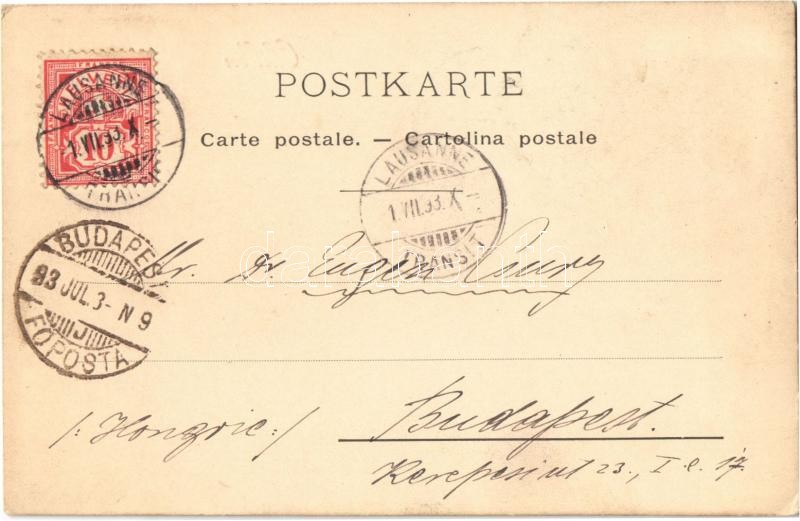 POSTKARTE
Carte postale. — Cartolina postale
FRANCO
10
LAUSANNE
1.VII.93.X
TRANSIT
LAUSANNE
1.VII.93.X
TRANSIT
BUDAPEST
93 JUL.3- N 9
FŐPOSTA
darabanth
Dr. Eugen
/: Hongrie :/
Budapest.
Kerepesi ut 23., I. e. 17.